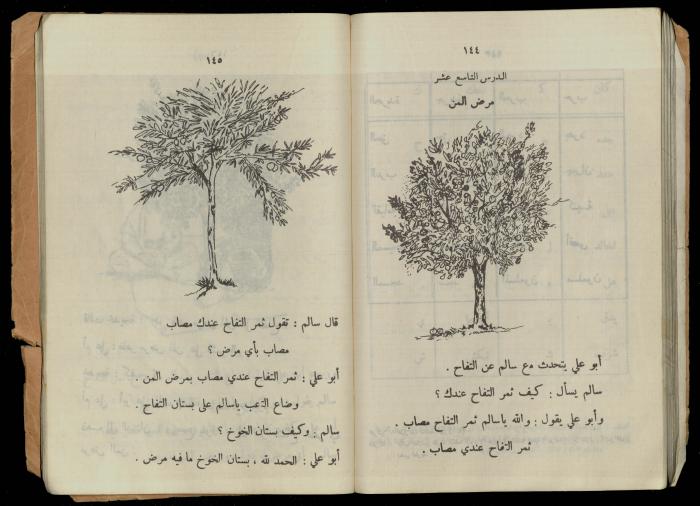 ١٤٤
الدرس التاسع عشر
مرض المن
أبو علي يتحدث مع سالم عن التفاح .
سالم يسأل : كيف ثمر التفاح عندك ؟
وأبو علي يقول : والله ياسالم ثمر التفاح مصاب .
ثمر التفاح عندي مصاب .
١٤٥
قال سالم : تقول ثمر التفاح عندك مصاب
مصاب بأي مرض ؟
أبو علي : ثمر التفاح عندي مصاب بمرض المن .
وضاع التعب ياسالم على بستان التفاح .
سالم : وكيف بستان الخوخ ؟
أبو علي : الحمد لله ، بستان الخوخ ما فيه مرض .